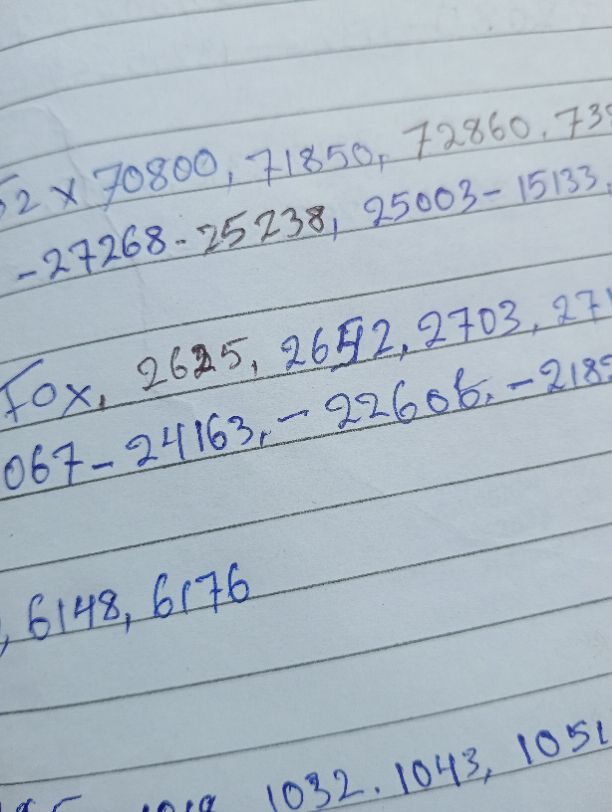 2 x 70800, 71850, 72860, 73
-27268-25238, 25003-15133,
Fox, 2625, 2652, 2703, 27
067-24163, -22606, -218
, 6148, 6176
1032, 1043, 1051